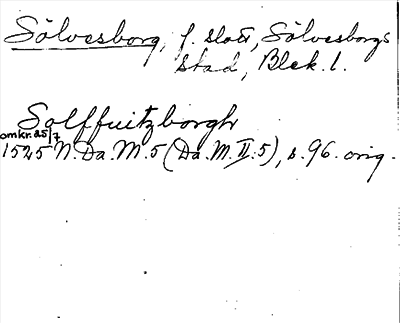 Sölvesborg, f. slott, Sölvesborgs
stad, Blek. l.
Solffuitzborgh
omkr. 25/7
1525 N. Da. M. 5 (Da. M. II: 5), s. 96. orig.